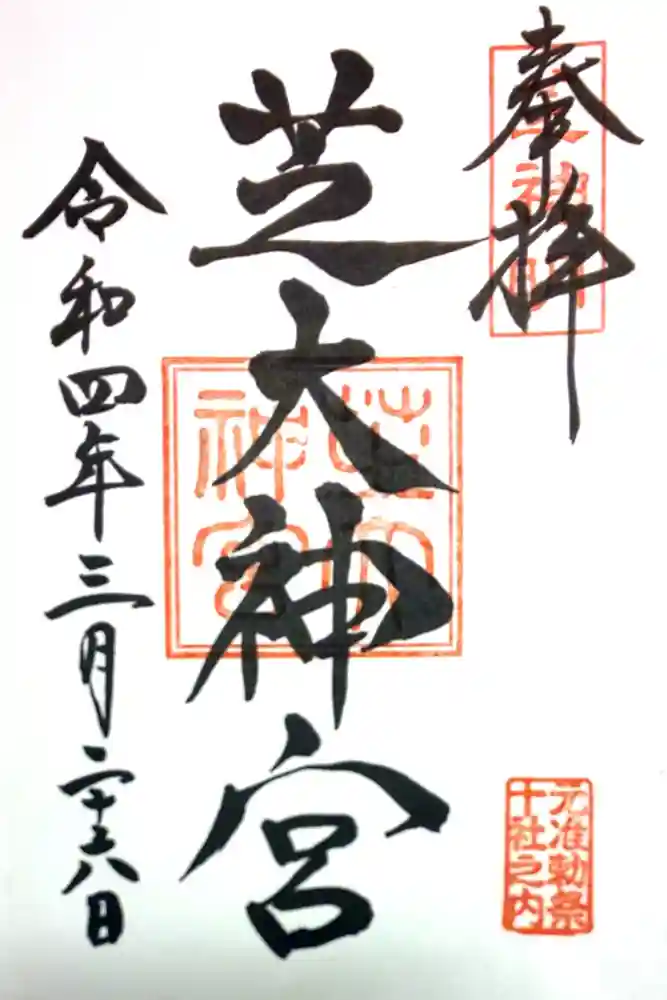 奉拝
神明
元准勅祭
十社之内
芝大神宮
芝大
神宮
令和四年三月二十六日